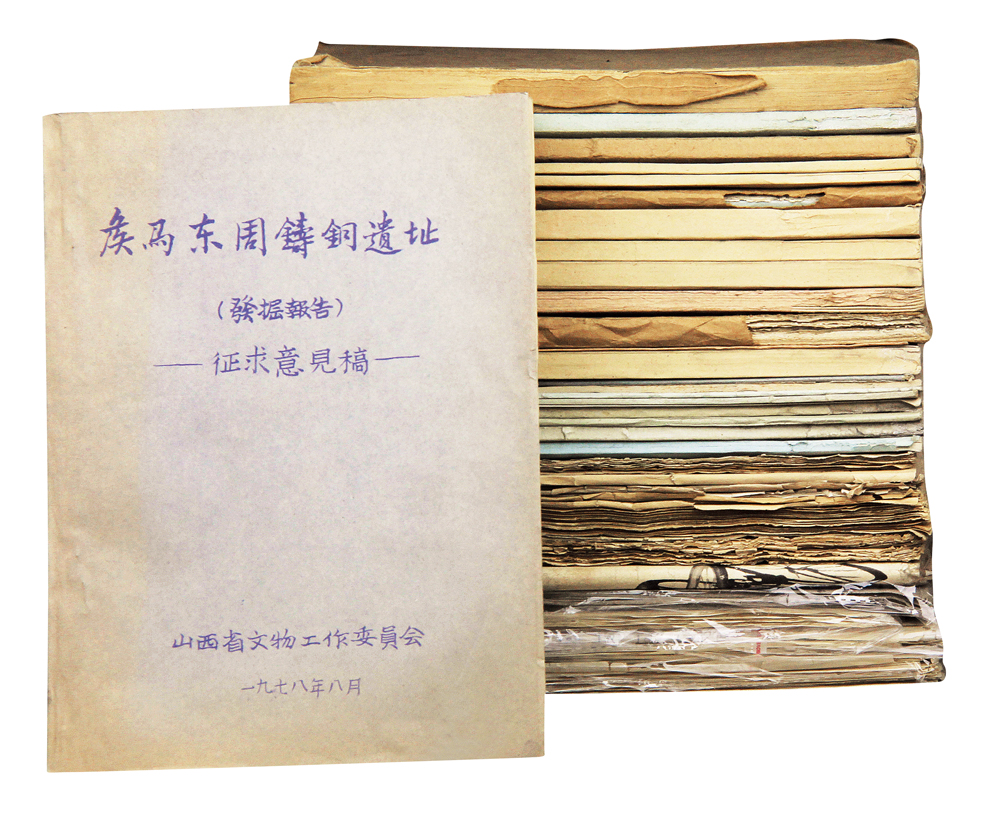 侯馬东周鑄銅遺址
（發掘報告）
——征求意見稿——
山西省文物工作委員会
一九七八年八月